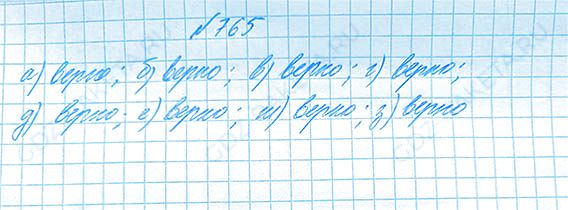 №765
а) верно; б) верно; в) верно; г) верно;
д) верно; е) верно; ж) верно; з) верно